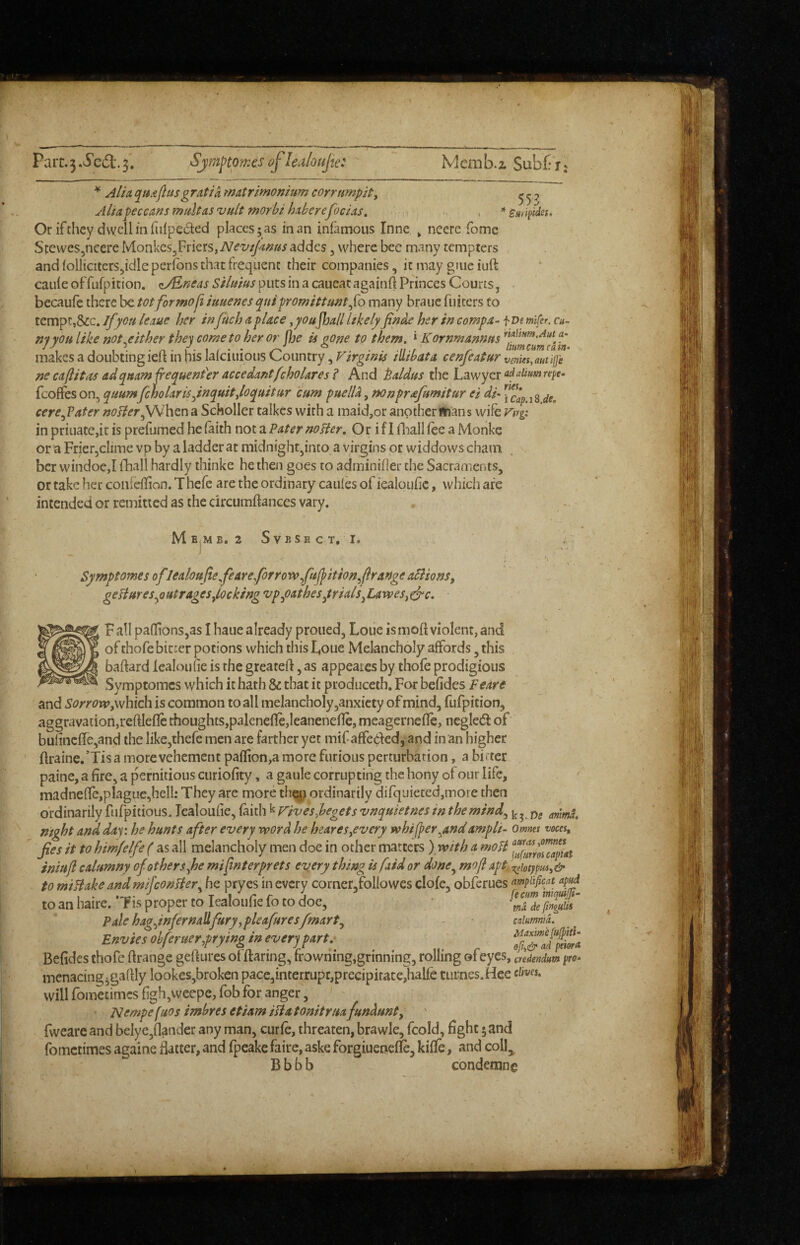 Part.3.Sect.3. Symptomes of Iealousie: Memb.2 Subs.1.
553
* Alia quæstus gratiâ matrimonium corrumpit,
Alia peccans multas vult morbi habere socias.
* Euripides.
Or if they dwell in suspected places, as in an infamous Inne, neere some
Stewes, neere Monkes, Friers, Nevisanus addes, where bee many tempters
and solliciters, idle persons that frequent their companies, it may giue iust
cause of suspition. Æneas Siluius puts in a caueat against Princes Courts,
because there be tot formosi iuuenes qui promittunt, so many braue suiters to
tempt, &c. If you leaue her in such a place, you shall likely finde her in compa-
ny you like not, either they come to her or she is gone to them. i Kornmannus
makes a doubting iest in his lasciuious Country, Virginis illibata censeatur
ne castitas ad quam frequenter accedant scholares? And Baldus the Lawyer
scoffes on, quum scholaris, inquit, loquitur cum puellâ, non præsumitur ei di-
cere, Pater noster, When a Scholler talkes with a maid, or another mans wife
in priuate, it is presumed he saith not a Pater noster. Or if I shall see a Monke
or a Frier, clime vp by a ladder at midnight, into a virgins or widdows cham
ber windoe, I shall hardly thinke he then goes to administer the Sacraments,
or take her confession. These are the ordinary causes of iealousie, which are
intended or remitted as the circumstances vary.
† De miser. cu-
rialium. Aut a-
lium cum eâ in-
venies, aut isse
ad alium repe-
ries.
i Cap. 18. de.
Virg:
MEMB. 2 SVBSECT. I.
Symptomes of Iealousie, feare, sorrow, suspition, strange actions,
gestures, outrages, locking vp, oathes, trials, Lawes, &c.
OF all passions, as I haue already proued, Loue is most violent, and
of those bitter potions which this Loue Melancholy affords, this
bastard Iealousie is the greatest, as appeares by those prodigious
Symptomes which it hath & that it produceth. For besides Feare
and Sorrow, which is common to all melancholy, anxiety of mind, suspition,
aggravation, restlesse thoughts, palenesse, leanenesse, meagernesse, neglect of
businesse, and the like, these men are farther yet misaffected, and in an higher
straine. 'Tis a more vehement passion, a more furious perturbation, a bitter
paine, a fire, a pernitious curiosity, a gaule corrupting the hony of our life,
madnesse, plague, hell: They are more then ordinarily disquieted, more then
ordinarily suspitious. Iealousie, saith k Vives, begets vnquietnes in the mind,
night and day: he hunts after every word he heares, every whisper, and ampli-
fies it to himselfe (as all melancholy men doe in other matters) with a most
iniust calumny of others, he misinterprets every thing is said or done, most apt
to mistake and misconster, he pryes in every corner, followes close, obserues
to an haire. 'Tis proper to Iealousie so to doe,
Pale hag, infernall fury, pleasures smart,
Envies obseruer, prying in every part.
Besides those strange gestures of staring, frowning, grinning, rolling of eyes,
menacing, gastly lookes, broken pace, interrupt, precipitate, halfe turnes. Hee
will sometimes sigh, weepe, sob for anger,
Nempe suos imbres etiam ista tonitrua fundunt,
sweare and belye, slander any man, curse, threaten, brawle, scold, fight; and
sometimes againe flatter, and speake faire, aske forgiuenesse, kisse, and coll,
k 3. De animâ.
Omnes voces,
auras, omnes
susurros captat
zelotypus, &
amplificat apud
se cum iniquissi-
mâ de singulis
calumniâ.
Maximè suspiti-
osi, & ad peiora
credendum pro-
clives.
Bbbb
condemne